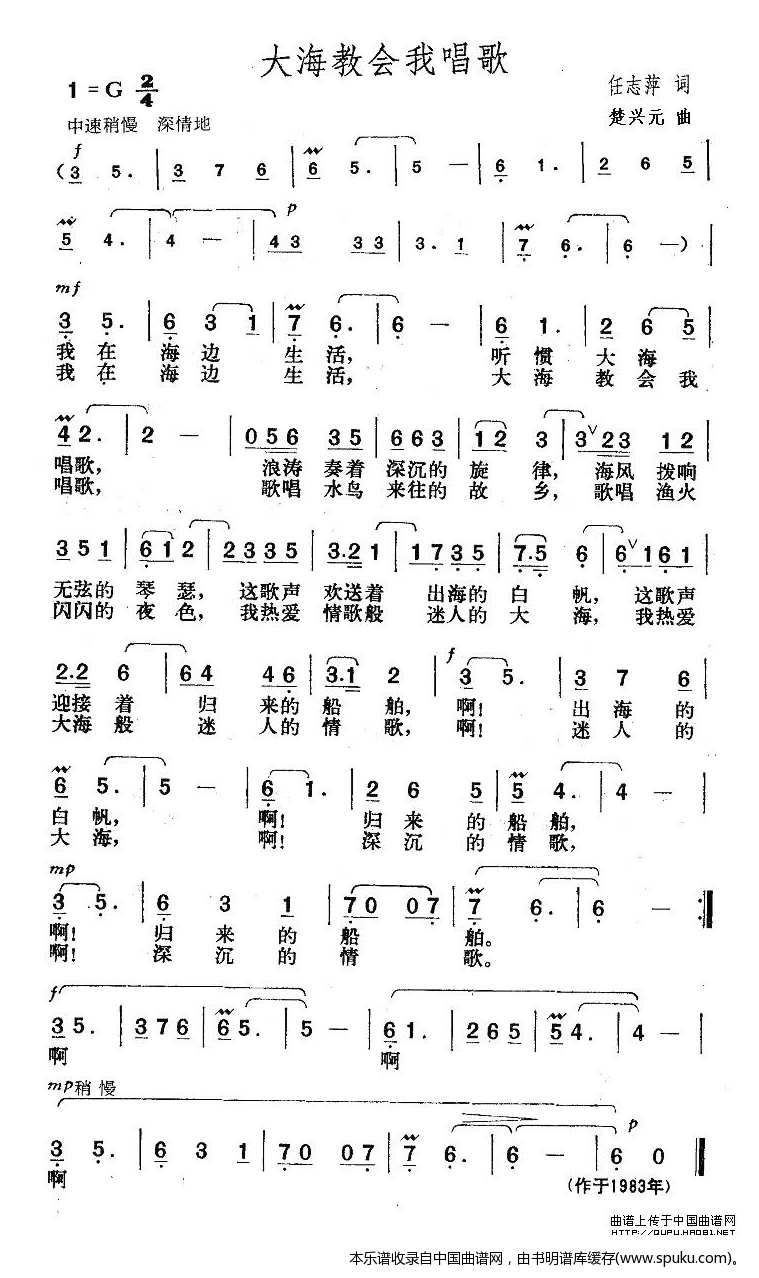 大海教会我唱歌
1 = G 2/4
任志萍 词
中速稍慢 深情地
楚兴元 曲
f
( 3 5 . | 3 7 6 | 6 5 . | 5 — | 6 1 . | 2 6 5 |
p
5 4 . | 4 — | 43 33 | 3 . 1 | 7 6 . | 6 — ) |
mf
3 5 . | 6 3 1 | 7 6 . | 6 — | 6 1 . | 2 6 5 |
我 在 海 边 生 活, 听 惯 大 海
我 在 海 边 生 活, 大 海 教 会 我
4 2 . | 2 — | 056 35 | 663 12 | 3 3 V 23 12 |
唱歌, 浪涛 奏着 深沉的 旋 律, 海风 拨响
唱歌, 歌唱 水鸟 来往的 故 乡, 歌唱 渔火
351 | 612 | 2335 | 3.21 | 1735 | 7.5 6 | 6 V 161 |
无弦的 琴 瑟, 这歌声 欢送着 出海的 白 帆, 这歌声
闪闪的 夜 色, 我热爱 情歌般 迷人的 大 海, 我热爱
f
2.2 6 | 64 46 | 3.1 2 | 3 5 . | 3 7 6 |
迎接着 归 来的 船 舶, 啊! 出 海 的
大海般 迷 人的 情 歌, 啊! 迷 人 的
6 5 . | 5 — | 6 1 . | 2 6 5 | 5 4 . | 4 — |
白 帆, 啊! 归 来 的 船 舶,
大 海, 啊! 深 沉 的 情 歌,
mp
3 5 . | 6 3 1 | 70 07 | 7 6 . | 6 — :‖
啊! 归 来 的 船 舶。
啊! 深 沉 的 情 歌。
f
3 5 . | 376 | 6 5 . | 5 — | 6 1 . | 265 | 5 4 . | 4 — |
啊 啊
mp 稍 慢
p
3 5 . | 6 3 1 | 70 07 | 7 6 . | 6 — | 6 0 ‖
啊
(作于1983年)
曲谱上传于中国曲谱网
http://QUPU.HAO81.NET
本乐谱收录自中国曲谱网，由书明谱库缓存(www.spuku.com)。